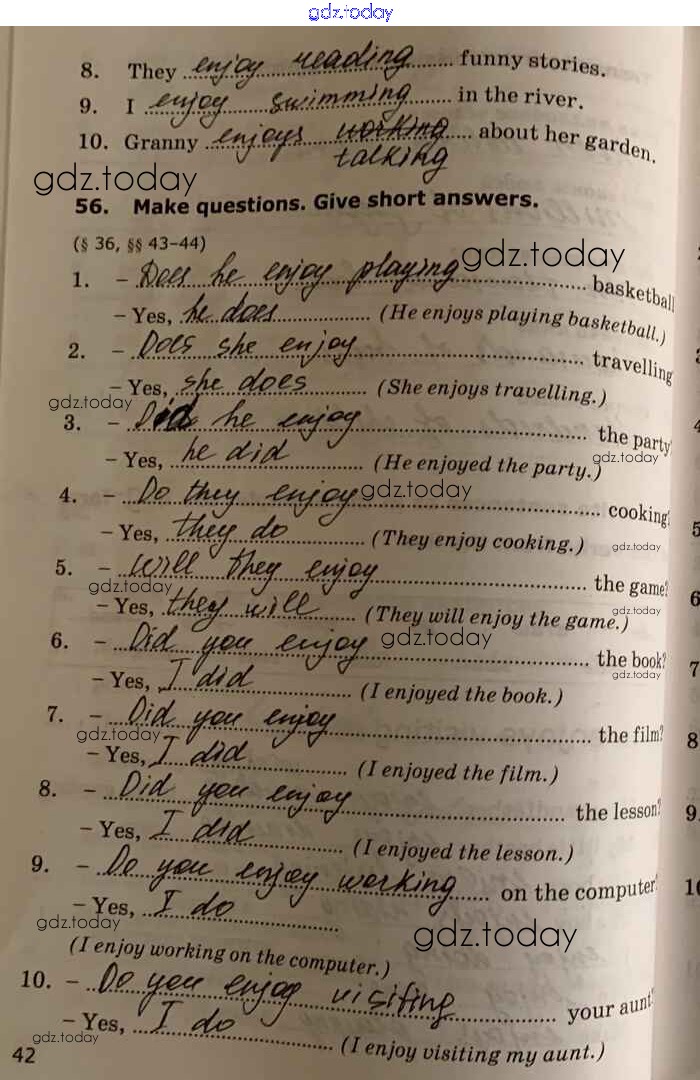 gdz.today
8. They enjoy reading funny stories.
9. I enjoy swimming in the river.
10. Granny enjoys working about her garden.
talking
gdz.today
56. Make questions. Give short answers.
(§ 36, §§ 43–44)
gdz.today
1. – Does he enjoy playing basketball
– Yes, he does (He enjoys playing basketball.)
2. – Does she enjoy travelling
– Yes, she does (She enjoys travelling.)
gdz.today
3. – Did he enjoy the party
– Yes, he did (He enjoyed the party.)
gdz.today
4. – Do they enjoy cooking?
gdz.today
– Yes, they do (They enjoy cooking.)
gdz.today
5. – Will they enjoy the game?
gdz.today
– Yes, they will (They will enjoy the game.)
gdz.today
6. – Did you enjoy the book?
gdz.today
– Yes, I did (I enjoyed the book.)
gdz.today
7. – Did you enjoy the film?
gdz.today
– Yes, I did (I enjoyed the film.)
8. – Did you enjoy the lesson?
– Yes, I did (I enjoyed the lesson.)
9. – Do you enjoy working on the computer?
– Yes, I do
gdz.today
gdz.today
(I enjoy working on the computer.)
10. – Do you enjoy visiting your aunt?
– Yes, I do (I enjoy visiting my aunt.)
gdz.today
42
5
6
7
8
9.
10